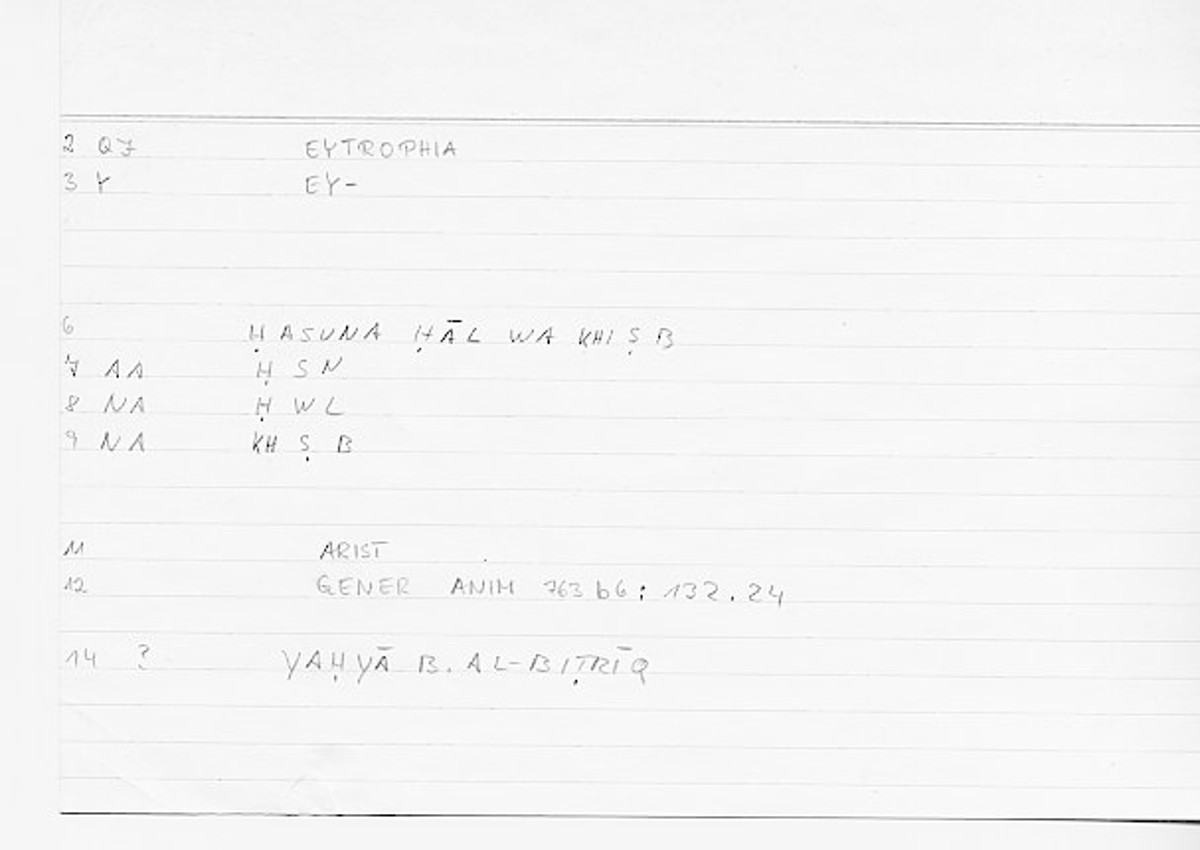 2 QJ EYTROPHIA
3 Y EY-
6 ḤASUNA ḤĀL WA KHIṢB
7 AA Ḥ S N
8 NA Ḥ W L
9 NA KH Ṣ B
11 ARIST
12 GENER ANIM 763 b6 : 132.24
14 ? YAḤYĀ B. AL-BIṬRĪQ